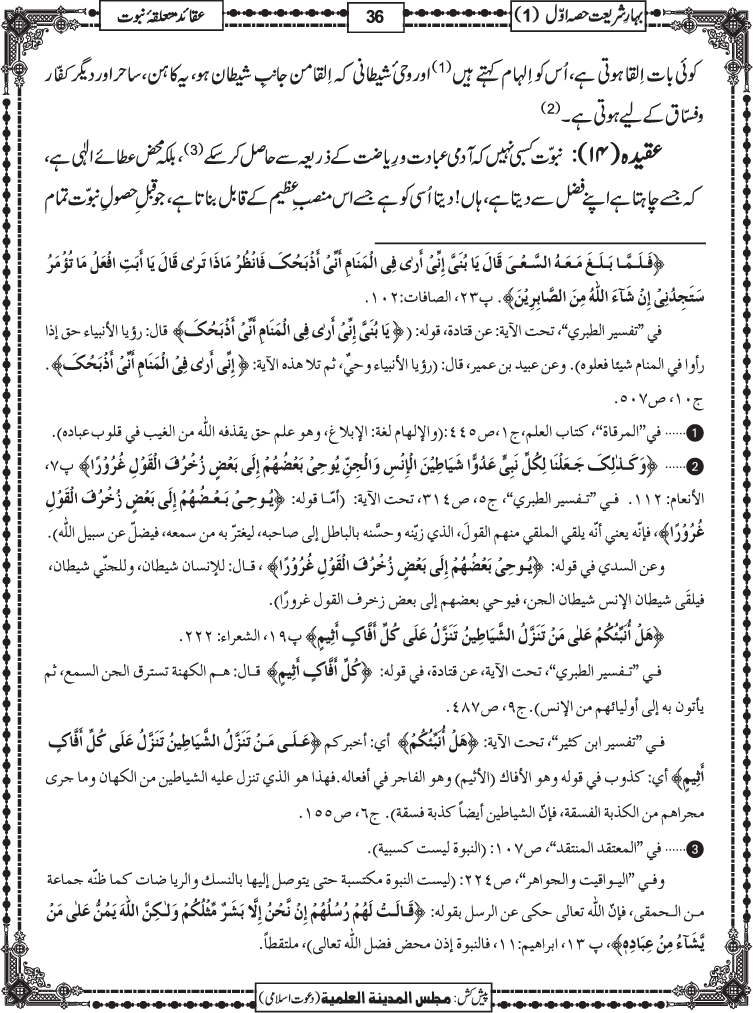 بہارِ شریعت حصہ اوّل (1)
36
عقائد متعلقۂ نبوت
کوئی بات اِلقا ہوتی ہے، اُس کو اِلہام کہتے ہیں (1) اور وحیٔ شیطانی کہ اِلقا من جانبِ شیطان ہو، یہ کاہن، ساحر اور دیگر کفّار
و فسّاق کے لیے ہوتی ہے۔ (2)
عقیدہ (۱۴): نبوّت کسبی نہیں کہ آدمی عبادت و رِیاضت کے ذریعہ سے حاصل کر سکے (3)، بلکہ محض عطائے الٰہی ہے،
کہ جسے چاہتا ہے اپنے فضل سے دیتا ہے، ہاں! دیتا اُسی کو ہے جسے اس منصبِ عظیم کے قابل بناتا ہے، جو قبلِ حصولِ نبوّت تمام
﴿فَلَمَّا بَلَغَ مَعَهُ السَّعْیَ قَالَ یَا بُنَیَّ إِنِّیْ أَرٰی فِی الْمَنَامِ أَنِّیْ أَذْبَحُکَ فَانْظُرْ مَاذَا تَرٰی قَالَ یَا أَبَتِ افْعَلْ مَا تُؤْمَرُ
سَتَجِدُنِیْ إِنْ شَاءَ اللّٰهُ مِنَ الصَّابِرِیْنَ﴾. پ٢٣، الصافات:١٠٢.
في ”تفسير الطبري“، تحت الآية: عن قتادة، قوله: (﴿ یَا بُنَیَّ إِنِّیْ أَرٰی فِی الْمَنَامِ أَنِّیْ أَذْبَحُکَ﴾ قال: رؤيا الأنبياء حق إذا
رأوا في المنام شيئا فعلوه). وعن عبيد بن عمير، قال: (رؤيا الأنبياء وحيٌ، ثم تلا هذه الآية: ﴿ إِنِّی أَرٰی فِیْ الْمَنَامِ أَنِّیْ أَذْبَحُکَ﴾.
ج١٠، ص٥٠٧.
1 ...... في”المرقاة“، كتاب العلم،ج١،ص٤٤٥:(والإلهام لغة: الإبلاغ، وهو علم حق يقذفه الله من الغيب في قلوب عباده).
2 ...... ﴿وَکَذٰلِکَ جَعَلْنَا لِکُلِّ نَبِیٍّ عَدُوًّا شَیَاطِیْنَ الْإِنْسِ وَالْجِنِّ یُوحِیْ بَعْضُهُمْ إِلَی بَعْضٍ زُخْرُفَ الْقَوْلِ غُرُوْرًا﴾ پ٧،
الأنعام: ١١٢. في ”تفسير الطبري“، ج٥، ص٣١٤، تحت الآية: (أمّا قوله: ﴿یُوحِیْ بَعْضُهُمْ إِلَی بَعْضٍ زُخْرُفَ الْقَوْلِ
غُرُوْرًا﴾، فإنّه يعني أنّه يلقي الملقي منهم القولَ، الذي زيّنه وحسَّنه بالباطل إلى صاحبه، ليغترّ به من سمعه، فيضلّ عن سبيل الله).
وعن السدي في قوله: ﴿یُوحِیْ بَعْضُهُمْ إِلَی بَعْضٍ زُخْرُفَ الْقَوْلِ غُرُوْرًا﴾ ، قال: للإنسان شيطان، وللجنّي شيطان،
فيلقَى شيطان الإنس شيطان الجن، فيوحي بعضهم إلى بعض زخرف القول غرورًا).
﴿هَلْ أُنَبِّئُکُمْ عَلٰی مَنْ تَنَزَّلُ الشَّیَاطِیْنُ تَنَزَّلُ عَلَی کُلِّ أَفَّاکٍ أَثِیْمٍ﴾ پ١٩، الشعراء: ٢٢٢.
في ”تفسير الطبري“، تحت الآية، عن قتادة، في قوله: ﴿کُلِّ أَفَّاکٍ أَثِیْمٍ﴾ قال: هم الكهنة تسترق الجن السمع، ثم
يأتون به إلى أوليائهم من الإنس). ج٩، ص٤٨٧.
في ”تفسير ابن كثير“، تحت الآية: ﴿هَلْ أُنَبِّئُکُمْ﴾ أي: أخبركم ﴿عَلَی مَنْ تَنَزَّلُ الشَّیَاطِیْنُ تَنَزَّلُ عَلَی کُلِّ أَفَّاکٍ
أَثِیْمٍ﴾ أي: كذوب في قوله وهو الأفاك (الأثيم) وهو الفاجر في أفعاله.فهذا هو الذي تنزل عليه الشياطين من الكهان وما جرى
مجراهم من الكذبة الفسقة، فإنّ الشياطين أيضاً كذبة فسقة). ج٦، ص١٥٥.
3 ...... في ”المعتقد المنتقد“، ص١٠٧: (النبوة ليست كسبية).
وفي ”اليواقيت والجواهر“، ص٢٢٤: (ليست النبوة مكتسبة حتى يتوصل إليها بالنسك والريا ضات كما ظنّه جماعة
من الحمقى، فإنّ الله تعالى حكى عن الرسل بقوله: ﴿قَالَتْ لَهُمْ رُسُلُهُمْ إِنْ نَّحْنُ إِلَّا بَشَرٌ مِّثْلُکُمْ وَلٰـکِنَّ اللّٰهَ یَمُنُّ عَلٰی مَنْ
یَّشَآءُ مِنْ عِبَادِهٖ﴾، پ ١٣، ابراهيم:١١، فالنبوة إذن محض فضل الله تعالى)، ملتقطاً.
پیش کش: مجلس المدينة العلمية (دعوت اسلامی)